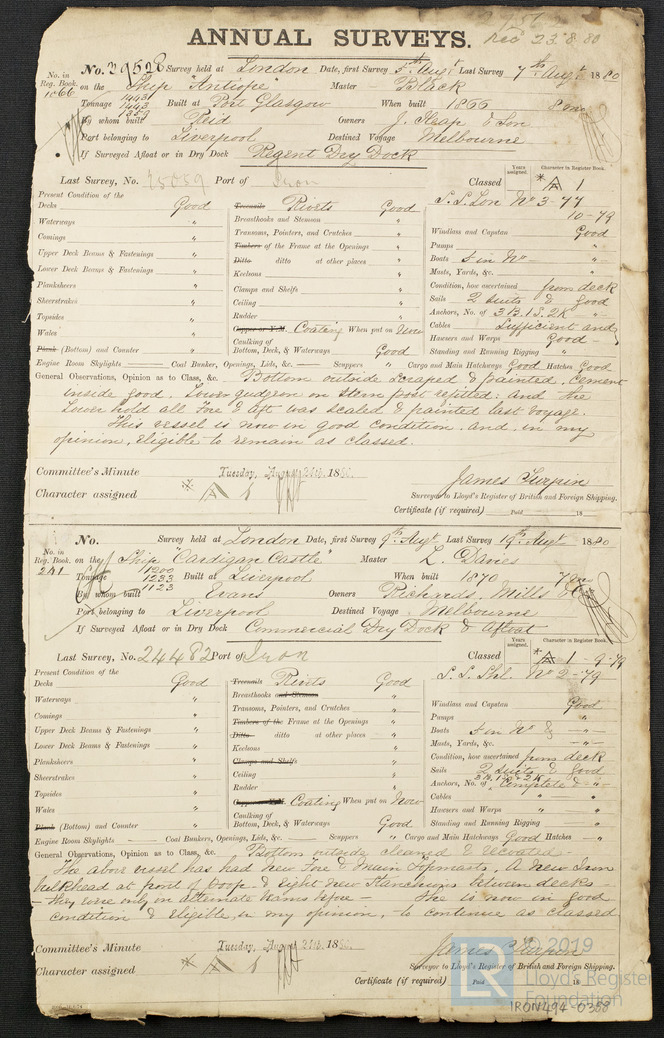 Rec 23.8.80
ANNUAL SURVEYS.
No. in Reg. Book. 1066
No. 39528 Survey held at London Date, first Survey 5th Augt Last Survey 7th Augt 1880
on the Ship "Antiope" Master Black
Tonnage 1443 1443 1359 Built at Port Glasgow When built 1866 8mo
By whom built Reid Owners J. Heap & Son
Port belonging to Liverpool Destined Voyage Melbourne
If Surveyed Afloat or in Dry Dock Regent Dry Dock
Last Survey, No. 25059 Port of Iron Classed Years assigned. Character in Register Book. * A 1
Present Condition of the
Decks Good Treenails Rivets Good S.S. Lon No 3-77
Waterways " Breasthooks and Stemson " 10-79
Comings " Transoms, Pointers, and Crutches " Windlass and Capstan Good
Upper Deck Beams & Fastenings " Timbers of the Frame at the Openings " Pumps "
Lower Deck Beams & Fastenings " Ditto ditto at other places " Boats 4 in No "
Planksheers " Keelsons " Masts, Yards, &c. "
Sheerstrakes " Clamps and Shelfs " Condition, how ascertained from deck
Topsides " Ceiling " Sails 2 suits & Good
Wales " Rudder " Anchors, No. of 3B. 1S. 2K "
Plank (Bottom) and Counter " Copper or Y.M. Coating When put on Now Cables Sufficient and
Caulking of Bottom, Deck, & Waterways Good Hawsers and Warps Good
Standing and Running Rigging "
Engine Room Skylights — Coal Bunker, Openings, Lids, &c. — Scuppers " Cargo and Main Hatchways Good Hatches Good
General Observations, Opinion as to Class, &c. Bottom outside scraped & painted, cement
inside good. Lower gudgeon on stern post refitted: and the
Lower hold all Fore & Aft was scaled & painted last voyage.
This vessel is now in good condition. and. in my
opinion, eligible to remain as classed.
Committee's Minute Tuesday, August 24th, 1880.
Character assigned * A 1
James Turpin
Surveyor to Lloyd's Register of British and Foreign Shipping.
Certificate (if required) Paid 18
No. in Reg. Book. 241
No. Survey held at London Date, first Survey 9th Augt Last Survey 19th Augt 1880
on the Ship "Cardigan Castle" Master L. Davies
Tonnage 1200 1233 1123 Built at Liverpool When built 1870 7mo
By whom built Evans Owners Richards, Mills & Co
Port belonging to Liverpool Destined Voyage Melbourne
If Surveyed Afloat or in Dry Dock Commercial Dry Dock & Afloat
Last Survey, No. 24482 Port of Iron Classed Years assigned. Character in Register Book. * A 1 - 9-79
Present Condition of the
Decks Good Treenails Rivets Good S.S. Shl. No 2-79
Waterways " Breasthooks and Stemson "
Comings " Transoms, Pointers, and Crutches " Windlass and Capstan Good
Upper Deck Beams & Fastenings " Timbers of the Frame at the Openings " Pumps "
Lower Deck Beams & Fastenings " Ditto ditto at other places " Boats 4 in No & "
Planksheers " Keelsons " Masts, Yards, &c. "
Sheerstrakes " Clamps and Shelfs " Condition, how ascertained from deck
Topsides " Ceiling " Sails 2 suits & Good
Wales " Rudder " Anchors, No. of 3B. 1S & 2K Complete & "
Plank (Bottom) and Counter " Copper or Y.M. Coating When put on Now Cables "
Caulking of Bottom, Deck, & Waterways Good Hawsers and Warps "
Standing and Running Rigging "
Engine Room Skylights — Coal Bunkers, Openings, Lids, &c. — Scuppers " Cargo and Main Hatchways Good Hatches "
General Observations, Opinion as to Class, &c. Bottom outside cleaned & recoated.
The above vessel has had New Fore & Main Topmasts. A New Iron
bulkhead at front of poop & Eight New Stanchions between decks
— they were only on alternate beams before — She is now in good
condition & Eligible, in my opinion, to continue as classed
Committee's Minute Tuesday, August 24th, 1880.
Character assigned * A 1
James Turpin
Surveyor to Lloyd's Register of British and Foreign Shipping.
Certificate (if required) Paid 18
LR © 2019
Lloyd's Register
Foundation
IRON494-0358